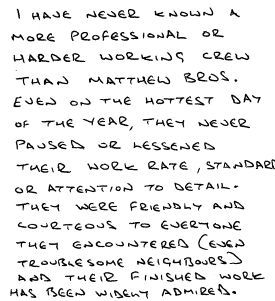 I HAVE NEVER KNOWN A
MORE PROFESSIONAL OR
HARDER WORKING CREW
THAN MATTHEW BROS.
EVEN ON THE HOTTEST DAY
OF THE YEAR, THEY NEVER
PAUSED OR LESSENED
THEIR WORK RATE, STANDARD
OR ATTENTION TO DETAIL.
THEY WERE FRIENDLY AND
COURTEOUS TO EVERYONE
THEY ENCOUNTERED (EVEN
TROUBLESOME NEIGHBOURS)
AND THEIR FINISHED WORK
HAS BEEN WIDELY ADMIRED.